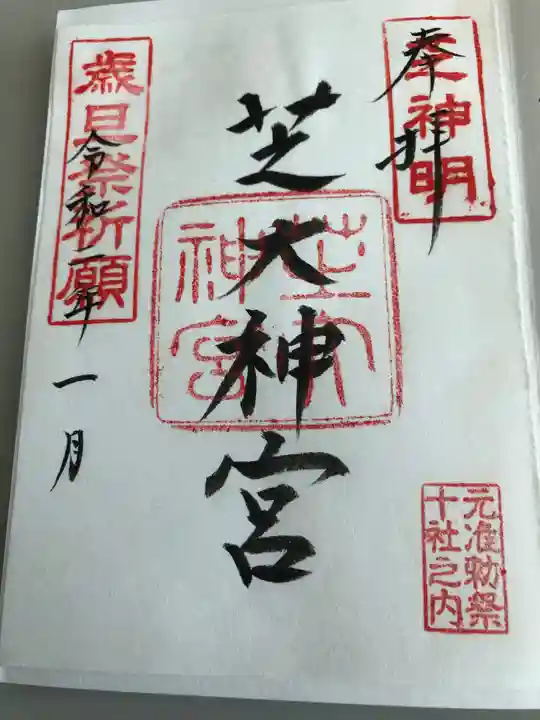 奉拝
芝神明
芝大神宮
芝大神宮
元准勅祭
十社之内
歳旦祭祈願
令和二年
一月